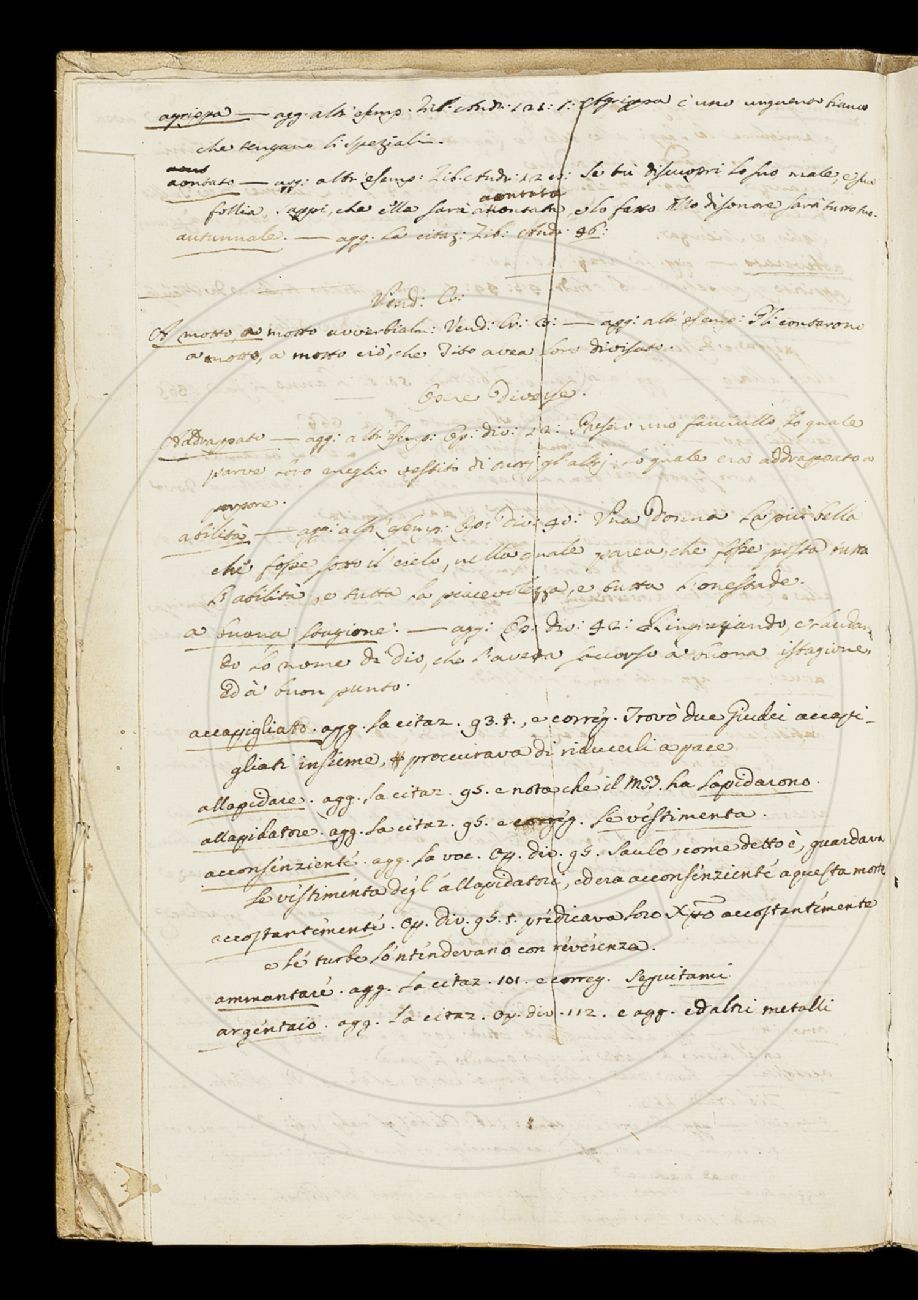 agrippa — agg. altr'esemp: Lib: Andr: 121: t: Agrippa è uno unguento bianco
che tengano li speziali.
aontato — agg: altr'esemp: Lib: Andr: 121: Se tu discuopri lo suo male, e sua
follia, appi, che ella sarà aontata, e lo fatto, lo disonore sarà tutto tuo.
aontata
autunnale. — agg: la citaz: Lib: Andr: 46:
Vend: Cr:
A motto, a motto avverbialm: Vend: Cr: 3: — agg: altr'esemp: Gli contarono
a motto, a motto ciò, che Tito avea loro divisato.
Opere Diverse.
Addrappato — agg: altr'esemp: Op: div: 12: Presero uno fanciullo lo quale
parve loro meglio vestito di tutti gl'altri, lo quale era addrappato a
porpore.
abilità — agg: altr'esemp: Op: Div: 40: Una Donna la più bella
che fosse sotto il cielo, nella quale parea, che fosse posta tutta
l'abilità, e tutta la piacevolezza, e tutta l'onestade.
a buona stagione. — agg: Op: div: 42: Ringraziando, e laudan
do lo nome di Dio, che l'aveva soccorso à buona istagione,
ed à buon punto.
accapigliato. agg. la citaz. 93. t., e correg. Trovò due Giudei accapi-
gliati insieme, procurava di riducerli a pace
allapidare. agg. la citaz. 95. e nota che il Ms. ha lapidarono.
allapidatore. agg. la citaz. 95. e correg. le vestimenta.
acconsenziente. agg. la voc. Op. div. 95. Saulo, come detto è, guardava
le vestimenta degl'allapidatori, ed era acconsenziente a questa morte
accostantemente. Op. Div. 95. t. predicava loro Xpto accostantemente
e le turbe lo 'ntendevano con reverenza.
ammantare. agg. la citaz. 101. e correg. seguitami
argentaio. agg. la citaz. Op. div. 112. e agg. ed altri metalli